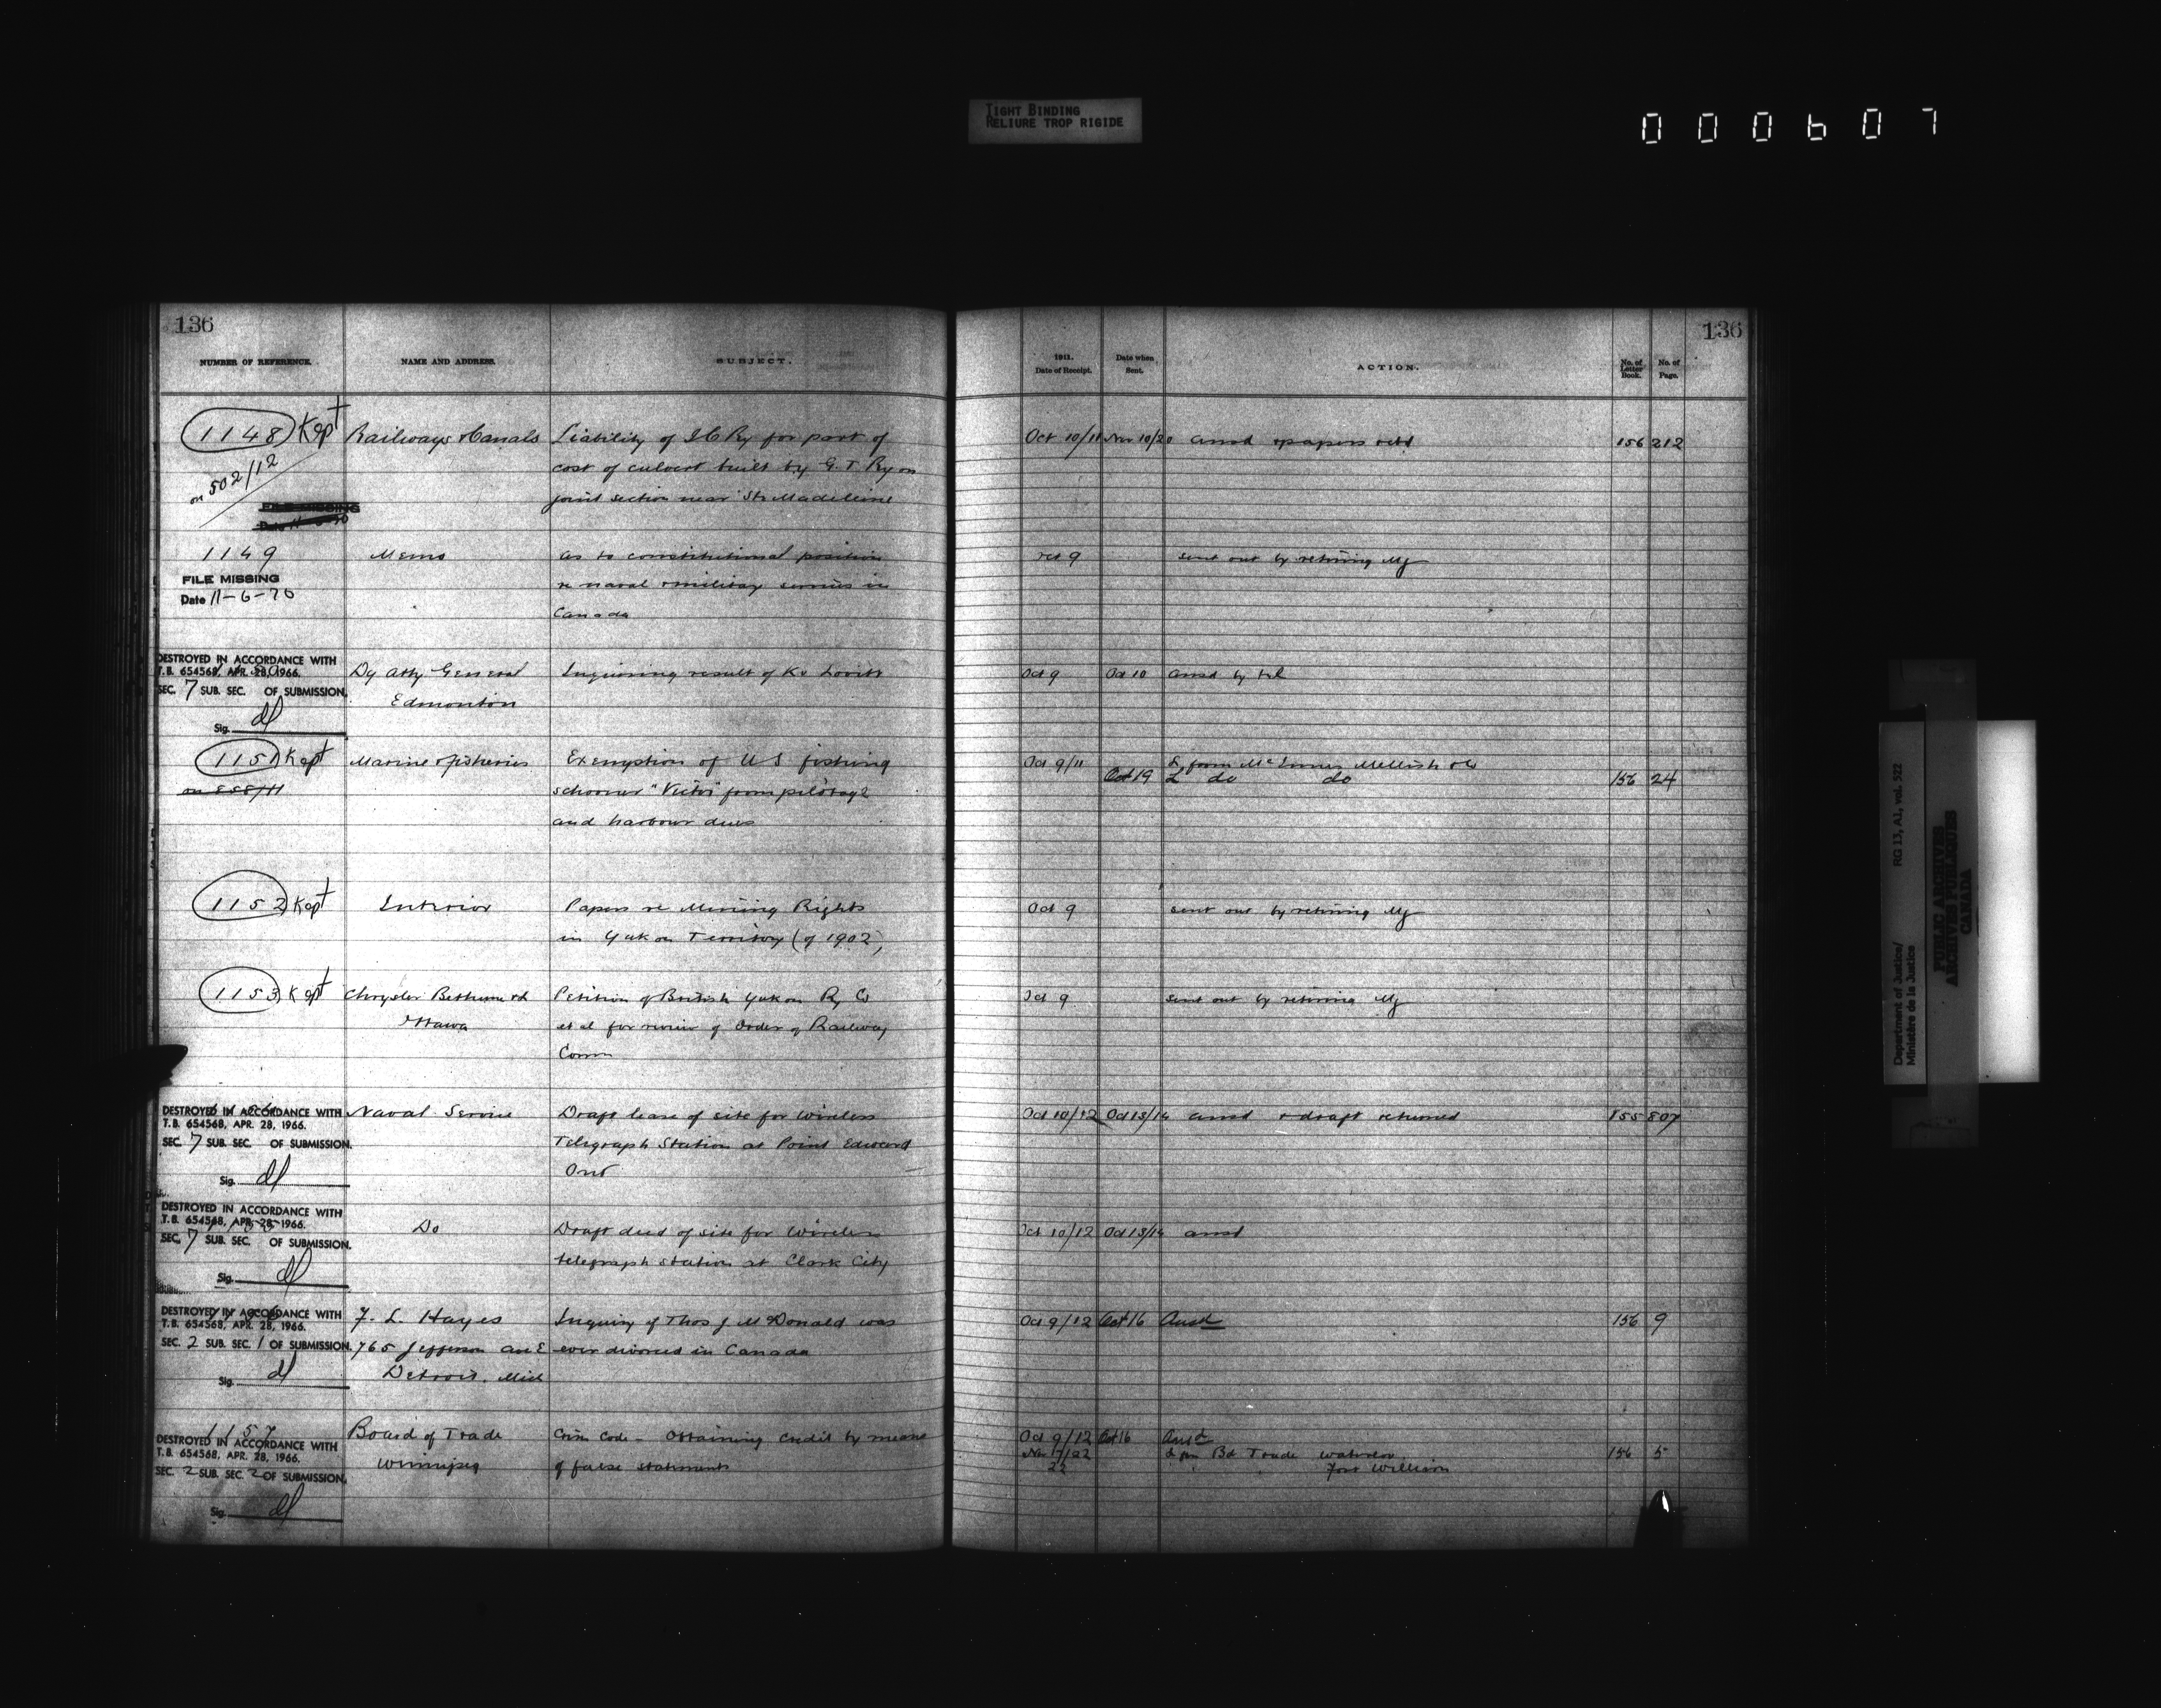 TIGHT BINDING
RELIURE TROP RIGIDE
000607
136
136
NUMBER OF REFERENCE.
NAME AND ADDRESS.
SUBJECT.
1911.
Date of Receipt.
Date when
Sent.
ACTION.
No. of
Letter
Book.
No. of
Page.
1148 Kept Railways & Canals Liability of I C Ry for part of Oct 10/11 Nov 10/20 ansd & papers retd 156 212
on 502/12 cost of culvert built by G. T. Ry on
joint section near Ste Madeleine
FILE MISSING
1149 Memo as to constitutional position Oct 9 sent out by retiring Mg
FILE MISSING re naval & military services in
Date 11-6-70 Canada
DESTROYED IN ACCORDANCE WITH
T.B. 654568, APR. 28, 1966. Dy Atty General Inquiring result of Kv Lovitt Oct 9 Oct 10 ansd by tel
SEC. 7 SUB. SEC. OF SUBMISSION.
Edmonton
Sig. dl
1151 Kept Marine & Fisheries Exemption of U S fishing Oct 9/11 L from McInnes Mellish &c
Oct 19 L do do 156 24
schooner "Victor" from pilotage
and harbour dues
1152 Kept Interior Papers re Mining Rights Oct 9 sent out by retiring Mg
in Yukon Territory (of 1902)
1153 Kept Chrysler Bethune &d Petition of British Yukon Ry Co Oct 9 sent out by retiring Mg
Ottawa et al for review of Order of Railway
Comm
DESTROYED IN ACCORDANCE WITH Naval Service Draft lease of site for Wireless Oct 10/12 Oct 13/14 ansd & draft returned 155 807
T.B. 654568, APR. 28, 1966.
SEC. 7 SUB. SEC. OF SUBMISSION. Telegraph Station at Point Edward
Ont
Sig. dl
DESTROYED IN ACCORDANCE WITH
T.B. 654568, APR. 28, 1966. Do Draft deed of site for Wireless Oct 10/12 Oct 13/14 ansd
SEC. 7 SUB. SEC. OF SUBMISSION.
telegraph station at Clark City
Sig. dl
DESTROYED IN ACCORDANCE WITH F. L. Hayes Inquiry if Thos J McDonald was Oct 9/12 Oct 16 Ansd 156 9
T.B. 654568, APR. 28, 1966.
SEC. 2 SUB. SEC. 1 OF SUBMISSION. 765 Jefferson ave E ever divorced in Canada
Detroit. Mich
Sig. dl
1157 Board of Trade Crim Code - Obtaining credit by means Oct 9/12 Oct 16 Ansd
DESTROYED IN ACCORDANCE WITH
T.B. 654568, APR. 28, 1966. Nov 17/22 L fm Bd Trade Waterloo 156 5
Winnipeg of false statements 22 Fort William
SEC. 2 SUB. SEC. 2 OF SUBMISSION.
Sig. dl
Department of Justice/
Ministère de la Justice
RG 13, A1, vol. 522
PUBLIC ARCHIVES
ARCHIVES PUBLIQUES
CANADA